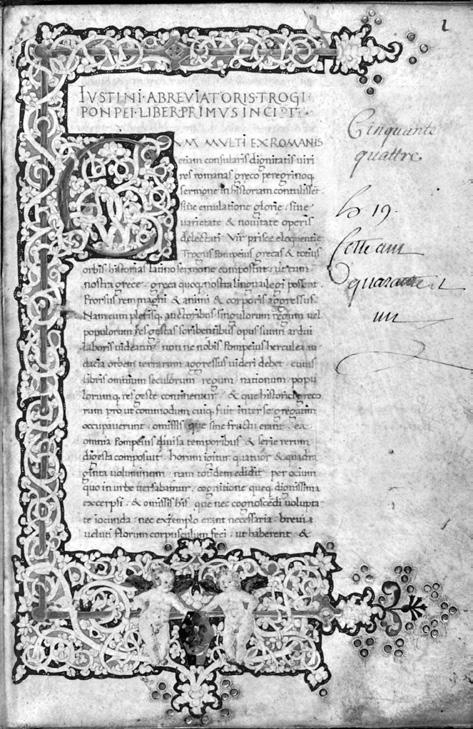 IVSTINI·ABREVIATORIS·TROGI·
PONPEI·LIBER·PRIMVS INCIPT·
CVM MVLTI EX ROMANIS
etiam consularis dignitatis uiri
res romanas greco peregrinoq;
sermone in historiam contulisset
siue emulatione glorie siue
uarietate & nouitate operis
delectatus Vir prisce eloquentie
Trogus Pompeius grecas & totius
orbis historias latino sermone composuit ut cum
nostra grece greca quoq; nostra lingua legi possent
Prorsus rem magni & animi & corporis aggressus·
Nam cum plerisq; auctoribus singulorum regum uel
populorum res gestas scribentibus opus suum ardui
laboris uideatur non ne nobis Pompeius herculea au
dacia orbem terrarum aggressus uideri debet cuius
libris omnium seculorum regum nationum popu
lorumq; res geste continentur & que historici greco
rum prout commodum cuiq; fuit inter se gregatim
occupauerunt omissis que sine fructu erant ea
omnia Pompeius diuisa temporibus & serie rerum
digesta composuit horum igitur quatuor & quadra
ginta uoluminum nam totidem edidit per ocium
quo in urbe uersabamur cognitione queq; dignissima
excerpsi & omissis his que nec cognoscēdi uolupta
te iocunda nec exemplo erant necessaria breue
ueluti florum corpusculum feci ut haberent &
Cinquante
quattre
19
quarante
un